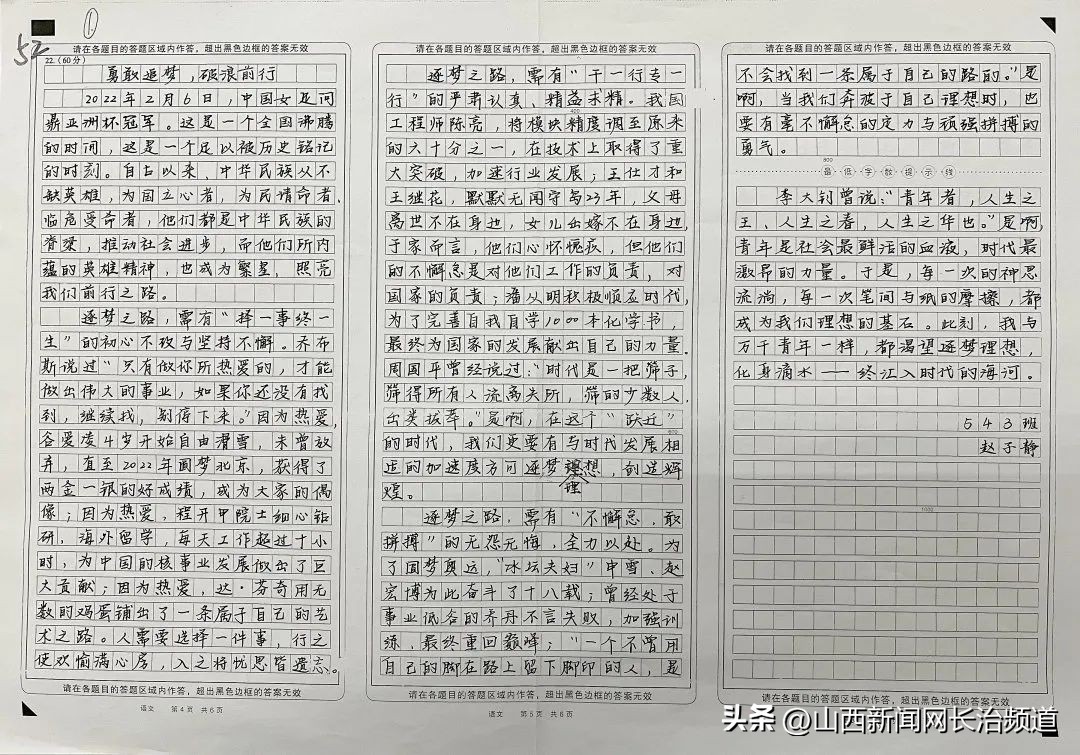 ①
52
请在各题目的答题区域内作答，超出黑色边框的答案无效
22.(60分)
勇敢追梦，破浪前行
2022年2月6日，中国女足问
鼎亚洲杯冠军。这是一个全国沸腾
的时间，这是一个足以被历史铭记
的时刻。自古以来，中华民族从不
缺英雄，为国立心者，为民请命者、
临危受命者，他们都是中华民族的
脊梁，推动社会进步，而他们所内
蕴的英雄精神，也成为繁星，照亮
我们前行之路。
逐梦之路，需有“择一事终一
生”的初心不改与坚持不懈。乔布
斯说过“只有做你所热爱的，才能
做出伟大的事业，如果你还没有找
到，继续找，别停下来。”因为热爱，
谷爱凌4岁开始自由滑雪，未曾放
弃，直至2022年圆梦北京，获得了
两金一银的好成绩，成为大家的偶
像；因为热爱，程开甲院士细心钻
研，海外留学，每天工作超过十小
时，为中国的核事业发展做出了巨
大贡献；因为热爱，达·芬奇用无
数的鸡蛋铺出了一条属于自己的艺
术之路。人需要选择一件事，行之
使欢愉满心房，入之将忧思皆遗忘。
请在各题目的答题区域内作答，超出黑色边框的答案无效
语文 第4页 共6页
请在各题目的答题区域内作答，超出黑色边框的答案无效
逐梦之路，需有“干一行专一
行”的严肃认真、精益求精。我国
工程师陈亮，将模块精度调至原来
的六十分之一，在技术上取得了重
大突破，加速行业发展；王仕才和
王继花，默默无闻守岛23年，父母
离世不在身边，女儿出嫁不在身边，
于家而言，他们心怀愧疚，但他们
的不懈怠是对他们工作的负责，对
国家的负责；潘从明积极顺应时代，
为了完善自我自学1000本化学书，
最终为国家的发展献出自己的力量。
周国平曾经说过：“时代是一把筛子，
筛得所有人流离失所，筛的少数人
出类拔萃。”是啊，在这个“跃迁”
600
的时代，我们更要有与时代发展相
适的加速度方可逐梦理想，创造辉
煌。
逐梦之路，需有“不懈怠，敢
拼搏”的无怨无悔，全力以赴。为
了圆梦奥运，“冰坛夫妇”申雪、赵
宏博为此奋斗了十八载；曾经处于
事业低谷的乔丹不言失败，加强训
练，最终重回巅峰；“一个不曾用
自己的脚在路上留下脚印的人，是
请在各题目的答题区域内作答，超出黑色边框的答案无效
语文 第5页 共6页
请在各题目的答题区域内作答，超出黑色边框的答案无效
不会找到一条属于自己的路的。”是
啊，当我们奔波于自己理想时，也
要有毫不懈怠的定力与顽强拼搏的
勇气。
800
最低字数提示线
李大钊曾说：“青年者，人生之
王、人生之春，人生之华也。”是啊，
青年是社会最鲜活的血液，时代最
激昂的力量。于是，每一次的神思
流淌，每一次笔间与纸的摩擦，都
成为我们理想的基石。此刻，我与
万千青年一样，都渴望逐梦理想，
化身滴水——终汇入时代的海河。
543班
赵子静
1000
请在各题目的答题区域内作答，超出黑色边框的答案无效
头条 @山西新闻网长治频道